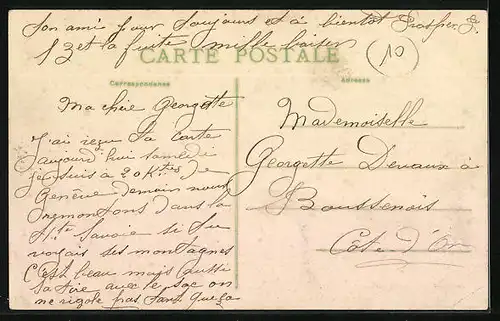 Ton ami pour toujours et à bientôt Prosper
1 3 et la fuite mille baiser
10
CARTE POSTALE
Correspondance
Adresse
Ma chère Georgette
J'ai reçu ta carte
aujourd'hui samedi
je suis à 20 K.tres de
Genève demain nous
remontons dans la
H.te Savoie si tu
voyais ses montagnes
C'est beau mais aussi
sa tire avec le sac on
ne rigole pas tant que ça
Mademoiselle
Georgette Devaux à
Boussenois
Côte d'Or